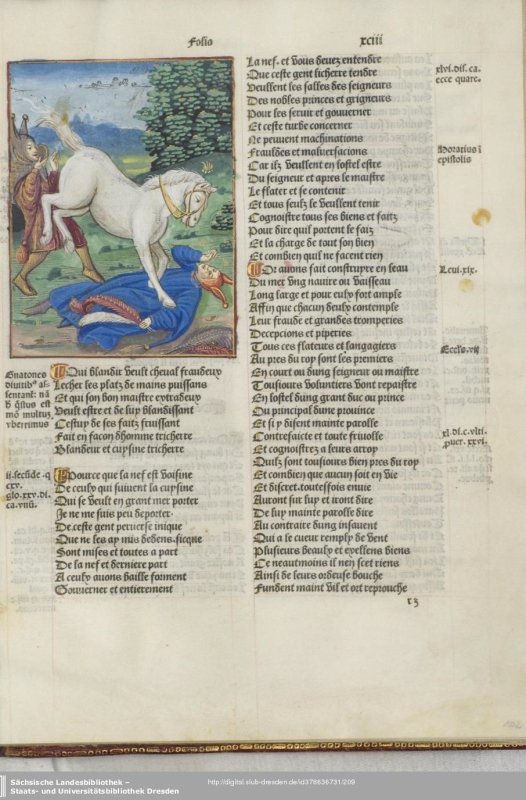 Folio
xciii
Gnatones
diuitibꝰ as
sentant: nã
ẜ gſtus eſt
mõ multus
vberrimus
Qui blandir veult cheual fraudeux
Lecher les platz de mains puiſſans
Et qui ſon bon maiſtre eptradeux
Veult eſtre et de luy blandiſſant
Ceſtuy de ſes faitz feuiſſant
Fait en facon dhomme tricherre
Blandeur et cuyſine tricherre
ii. ſecũde. q
cxv.
glo. xxv. di.
ca. vnũ.
Pource que la nef eſt voiſine
De ceulx qui ſuiuent la cuyſine
Qui ſe veult en grant mer porter
Je ne me ſuis peu deporter.
De. ceſte gent peruerſe inique
Que ne les ay mis dedens. ſicque
Sont miſes et toutes a part
De la nef et derniere part
A ceulx auons baille forment
Gouuerner et entierement
La nef. et vous deuez entendre
Que ceſte gent licherre tendre
Veullent les ſalles des ſeigneurs
Des nobles princes et grigneurs
Pour les ſeruir et gouuerner
Et ceſte turbe concerner
Ne peuuent machinations
Fraulbes et maluerſacions
Car ilz veullent en loſtel eſtre
Du ſeigneur et apres le maiſtre
Le flater et ſe contenir
Et tous ſeulz le veullent tenir
Cognoiſtre tous ſes biens et faitz
Pour dire quil portent le faiz
Et la charge de tout ſon bien
Et combien quil ne facent rien
Or auons fait conſtruyre en leau
Du mer vng nauire ou vaiſſeau
Long large et pour eulx fort ample
Affin que chacun deulx contemple
Leur fraude et grandes tromperies
Decepcions et piperies
Tous ces flateurs et langagiers
Au pres du roy ſont les premiers
En court ou dung ſeigneur ou maiſtre
Touſiours voluntiers vont repaiſtre
En loſtel dung grant duc ou prince
Ou principal dune prouince
Et ſi y diſent mainte parolle
Contrefaicte et toute friuolle
Et cognoiſtrez a leurs arroy
Quilz ſont touſiours bien pres du roy
Et combien que aucun ſoit en vie
Et diſcret. touteſfois enuie
Auront ſur luy et iront dire
De luy mainte parolle dire
Au contraire dung inſauent
Qui a le cueur remply de vent
Pluſieurs beaulx et excellens biens
Ce neautmoins il nen ſcet riens
Ainſi de leurs ordeuſe bouche
Fundent maint vil et ort reprouche
r3
xlvi. diſ. ca.
ecce quare.
Horatius ĩ
epiſtolis
Leui. xix.
Eccſ. vii
xl. di. c. vlti.
puer. xxvi.
Sächsische Landesbibliothek –
Staats- und Universitätsbibliothek Dresden
http://digital.slub-dresden.de/id378636731/209